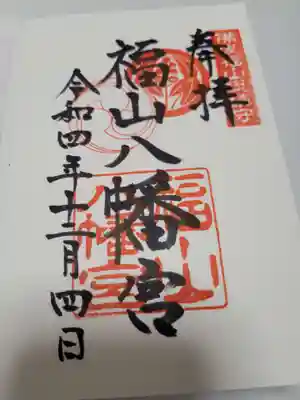 奉拝
福山八幡宮
令和四年十二月四日
福山
八幡宮